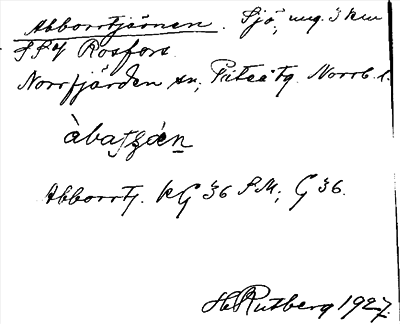 Abborrtjärnen. Sjö, ung. 3 km
SSV Rosfors.
Norrfjärden sn, Piteå tg. Norrb. l.
àbaʃʒán
Abborrtj. kG 36 SM; G 36.
H. Rutberg 1927.